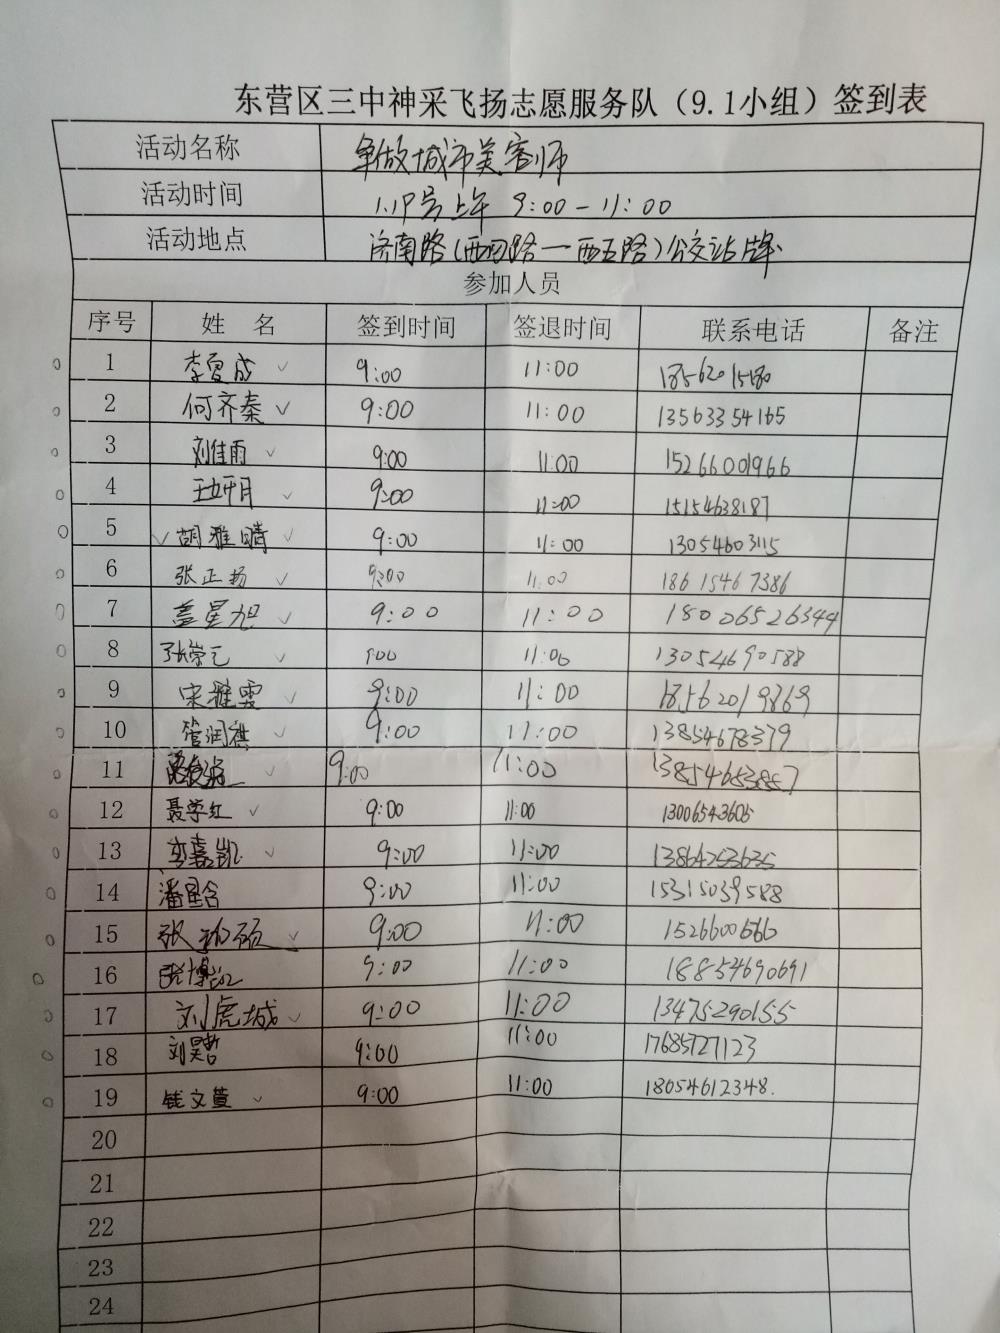 东营区三中神采飞扬志愿服务队（9.1小组）签到表
活动名称 争做城市美容师
活动时间 1.19号上午 9:00－11:00
活动地点 济南路(西四路一西五路)公交站牌
参加人员
序号 姓 名 签到时间 签退时间 联系电话 备注
1 李 成 ✓ 9:00 11:00
2 何齐秦 ✓ 9:00 11:00 13563354165
3 刘佳雨 ✓ 9:00 11:00 15266001966
4 ✓ 9:00 11:00 15154638187
5 ✓ 胡雅晴 ✓ 9:00 11:00 13054603115
6 张正扬 ✓ 9:00 11:00 18615467386
7 盖星旭 ✓ 9:00 11:00 18006526344
8 ✓ 9:00 11:00 13054690588
9 宋雅雯 ✓ 9:00 11:00 18562019869
10 管润祺 ✓ 9:00 11:00 13854678379
11 9:00 11:00 13854653857
12 聂学红 ✓ 9:00 11:00 13006543605
13 李嘉凯 ✓ 9:00 11:00 13864253635
14 潘星含 9:00 11:00 15315039588
15 张 硕 ✓ 9:00 11:00
16 9:00 11:00 18854690691
17 刘虎城 ✓ 9:00 11:00 13475290155
18 刘昊哲 9:00 11:00 17685727123
19 钱文萱 ✓ 9:00 11:00 18054612348.
20
21
22
23
24